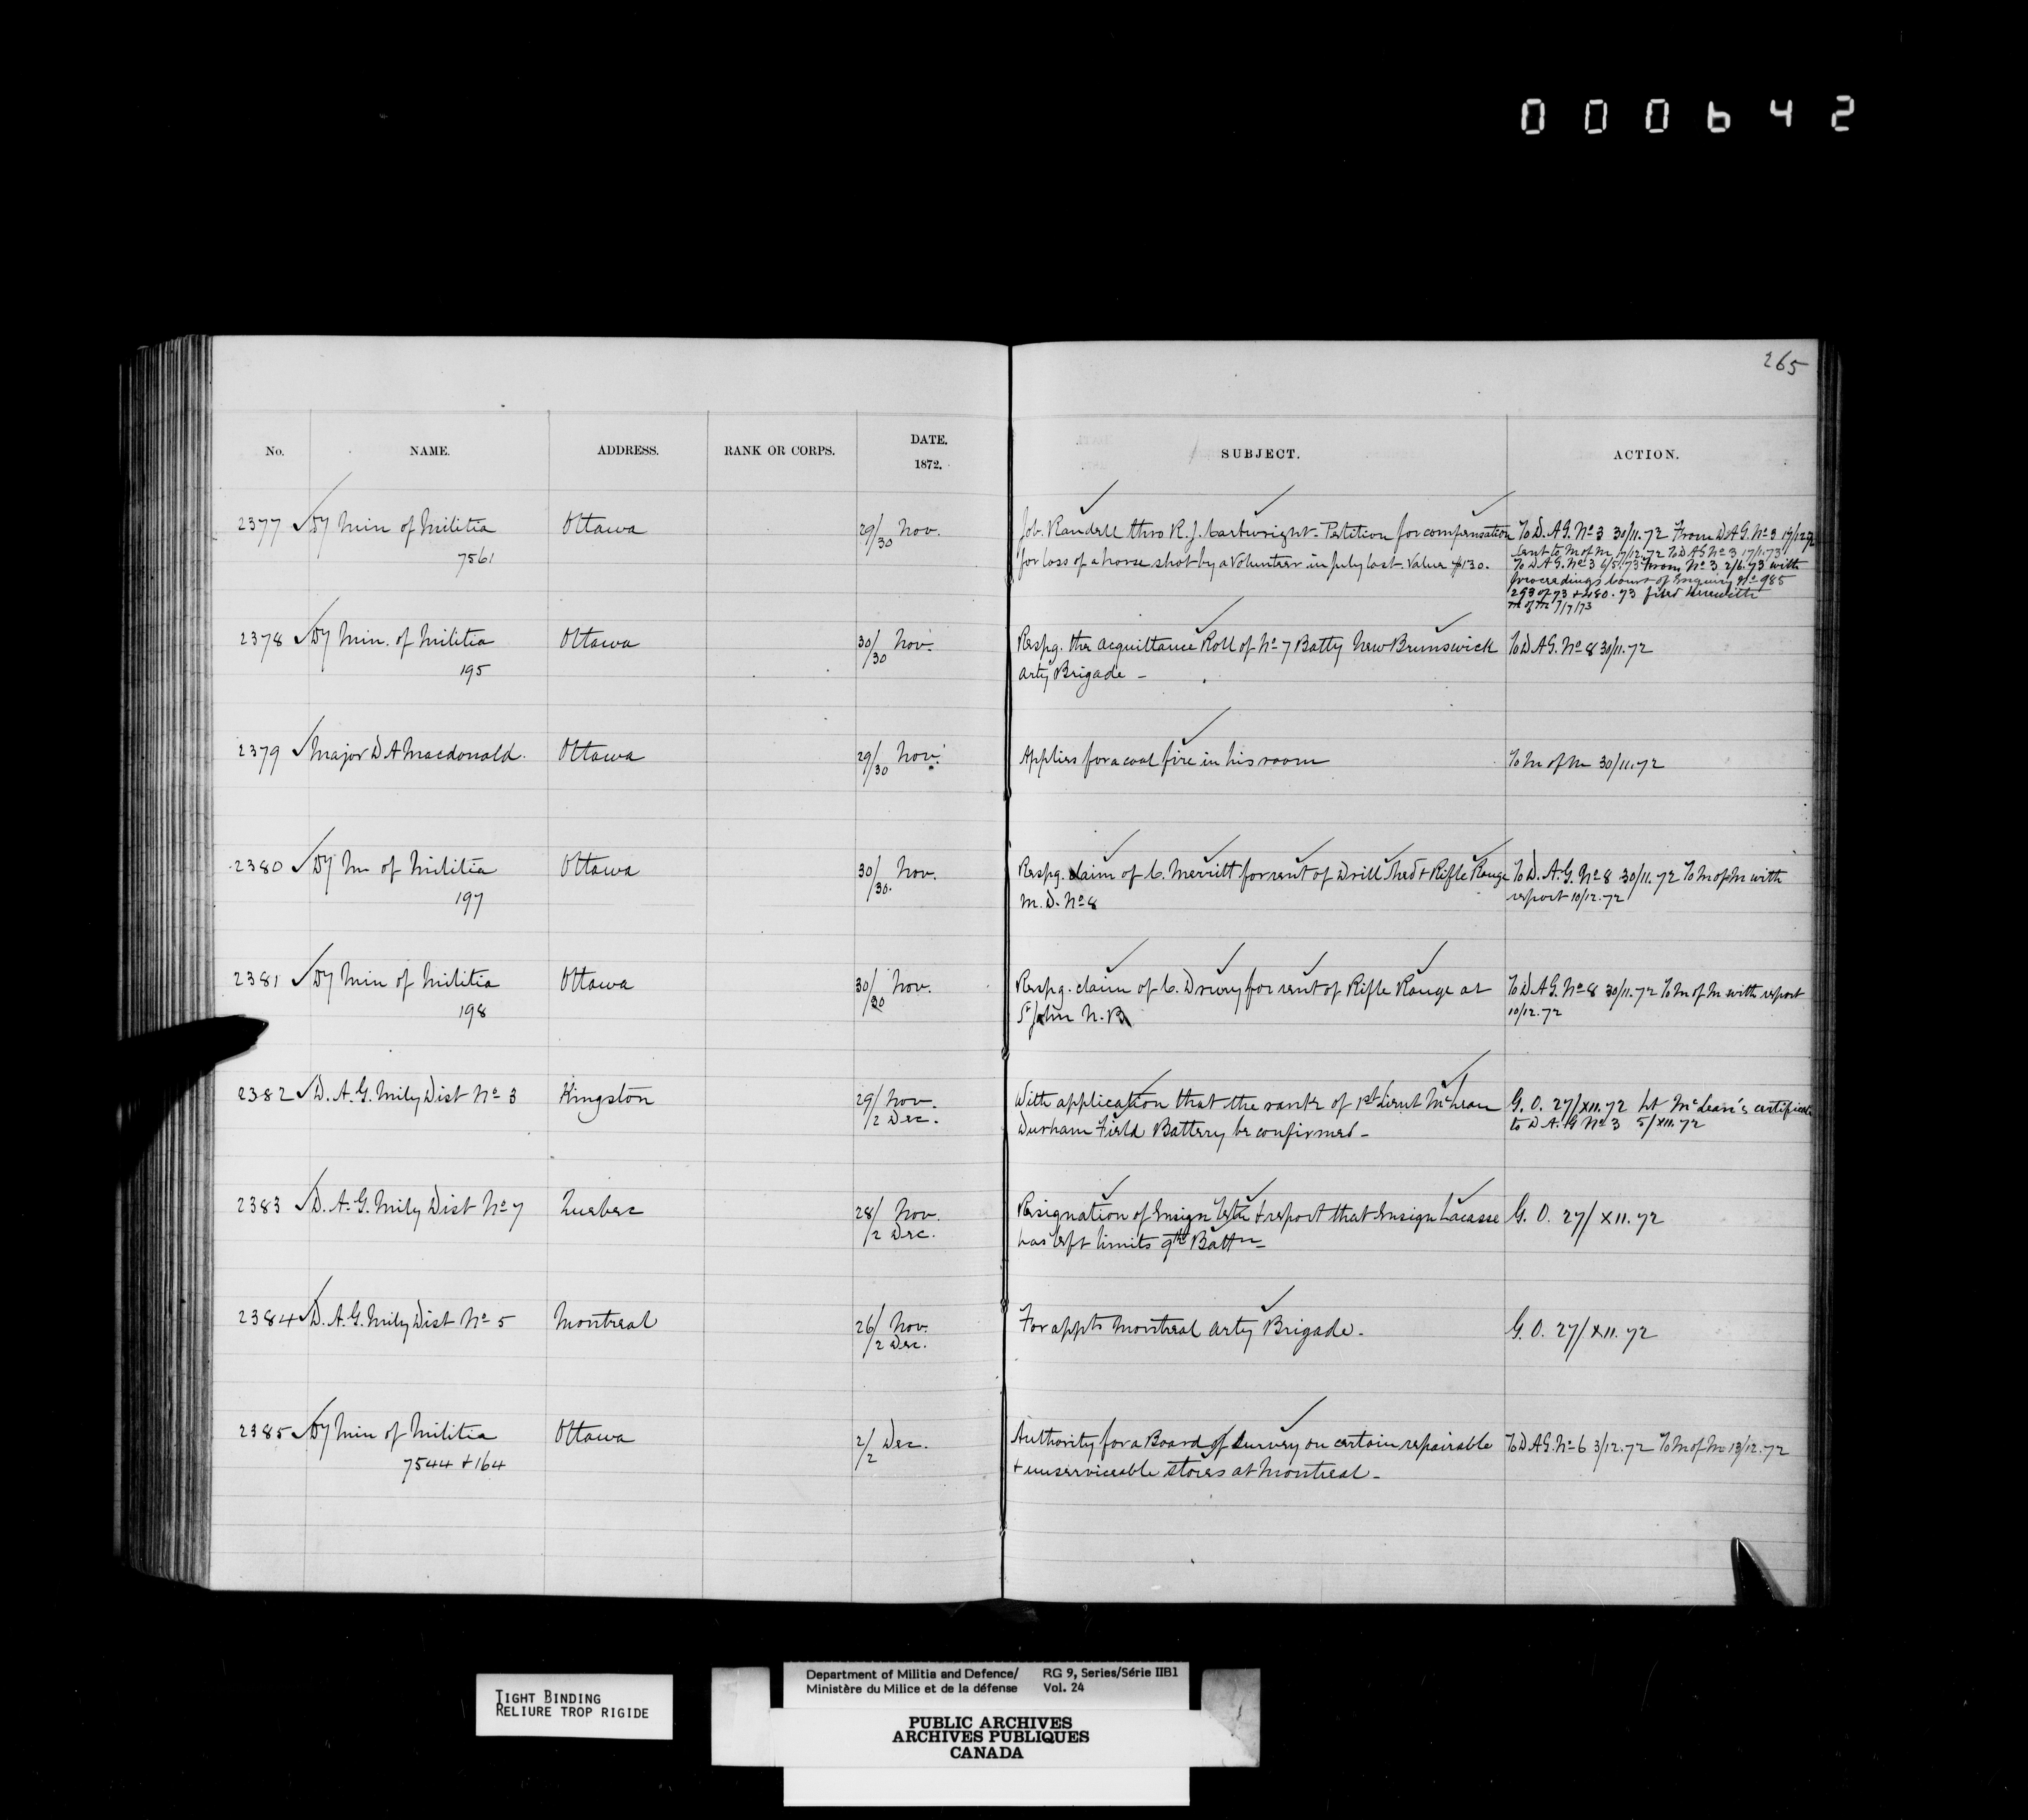 000642
265
No. NAME. ADDRESS. RANK OR CORPS. DATE. 1872. SUBJECT. ACTION.
2377 Dy Min of Militia Ottawa 29/30 Nov. Job. Randell thro R. J. Cartwright - Petition for compensation To D. A G. No 3 30/11.72 From D A G. No 3 17/12.72
7561 for loss of a horse shot by a Volunteer in July last. Value $130. Sent to M of M 7/12.72 To D A G No 3 17/1.73
To D A G. No 3 6/5.73 From No 3 2/6.73 with
proceedings Court of Enquiry No 985
293 of 73 + 480. 73 filed herewith
M of M 7/7/73
2378 Dy Min. of Militia Ottawa 30/30 Nov. Respg. the acquittance Roll of No 7 Batty New Brunswick To D A G. No 8 30/11.72
195 Arty Brigade -
2379 Major D A Macdonald. Ottawa 29/30 Nov. Applies for a coal fire in his room To M of M 30/11.72
2380 Dy M of Militia Ottawa 30/30. Nov. Respg. claim of C. Merritt for rent of Drill Shed + Rifle Range To D. A. G. No 8 30/11.72 To M of M with
197 M. D. No 8 report 10/12.72
2381 Dy Min of Militia Ottawa 30/30 Nov. Respg. claim of C. Drury for rent of Rifle Range at To D A G. No 8 30/11.72 To M of M with report
198 St John N. B 10/12.72
2382 D. A. G. Mily Dist No 3 Kingston 29/ Nov. With application that the rank of 1st Lieut McLean G. O. 27/XII.72 Lt McLean's certificate
/2 Dec. Durham Field Battery be confirmed - to D A. G No 3 5/XII.72
2383 D. A. G. Mily Dist No 7 Quebec 28/ Nov. Resignation of Ensign + report that Ensign Lacasse G. O. 27/XII.72
/2 Dec. has left limits 9th Battn -
2384 D. A. G. Mily Dist No 5 Montreal 26/ Nov. For appts Montreal Arty Brigade. G. O. 27/XII.72
/2 Dec.
2385 Dy Min of Militia Ottawa 2/2 Dec. Authority for a Board of Survey on certain repairable To D A G. No 6 3/12.72 To M of M 13/12.72
7544 + 164 + unserviceable stores at Montreal -
TIGHT BINDING
RELIURE TROP RIGIDE
Department of Militia and Defence/ RG 9, Series/Série IIB1
Ministère du Milice et de la défense Vol. 24
PUBLIC ARCHIVES
ARCHIVES PUBLIQUES
CANADA